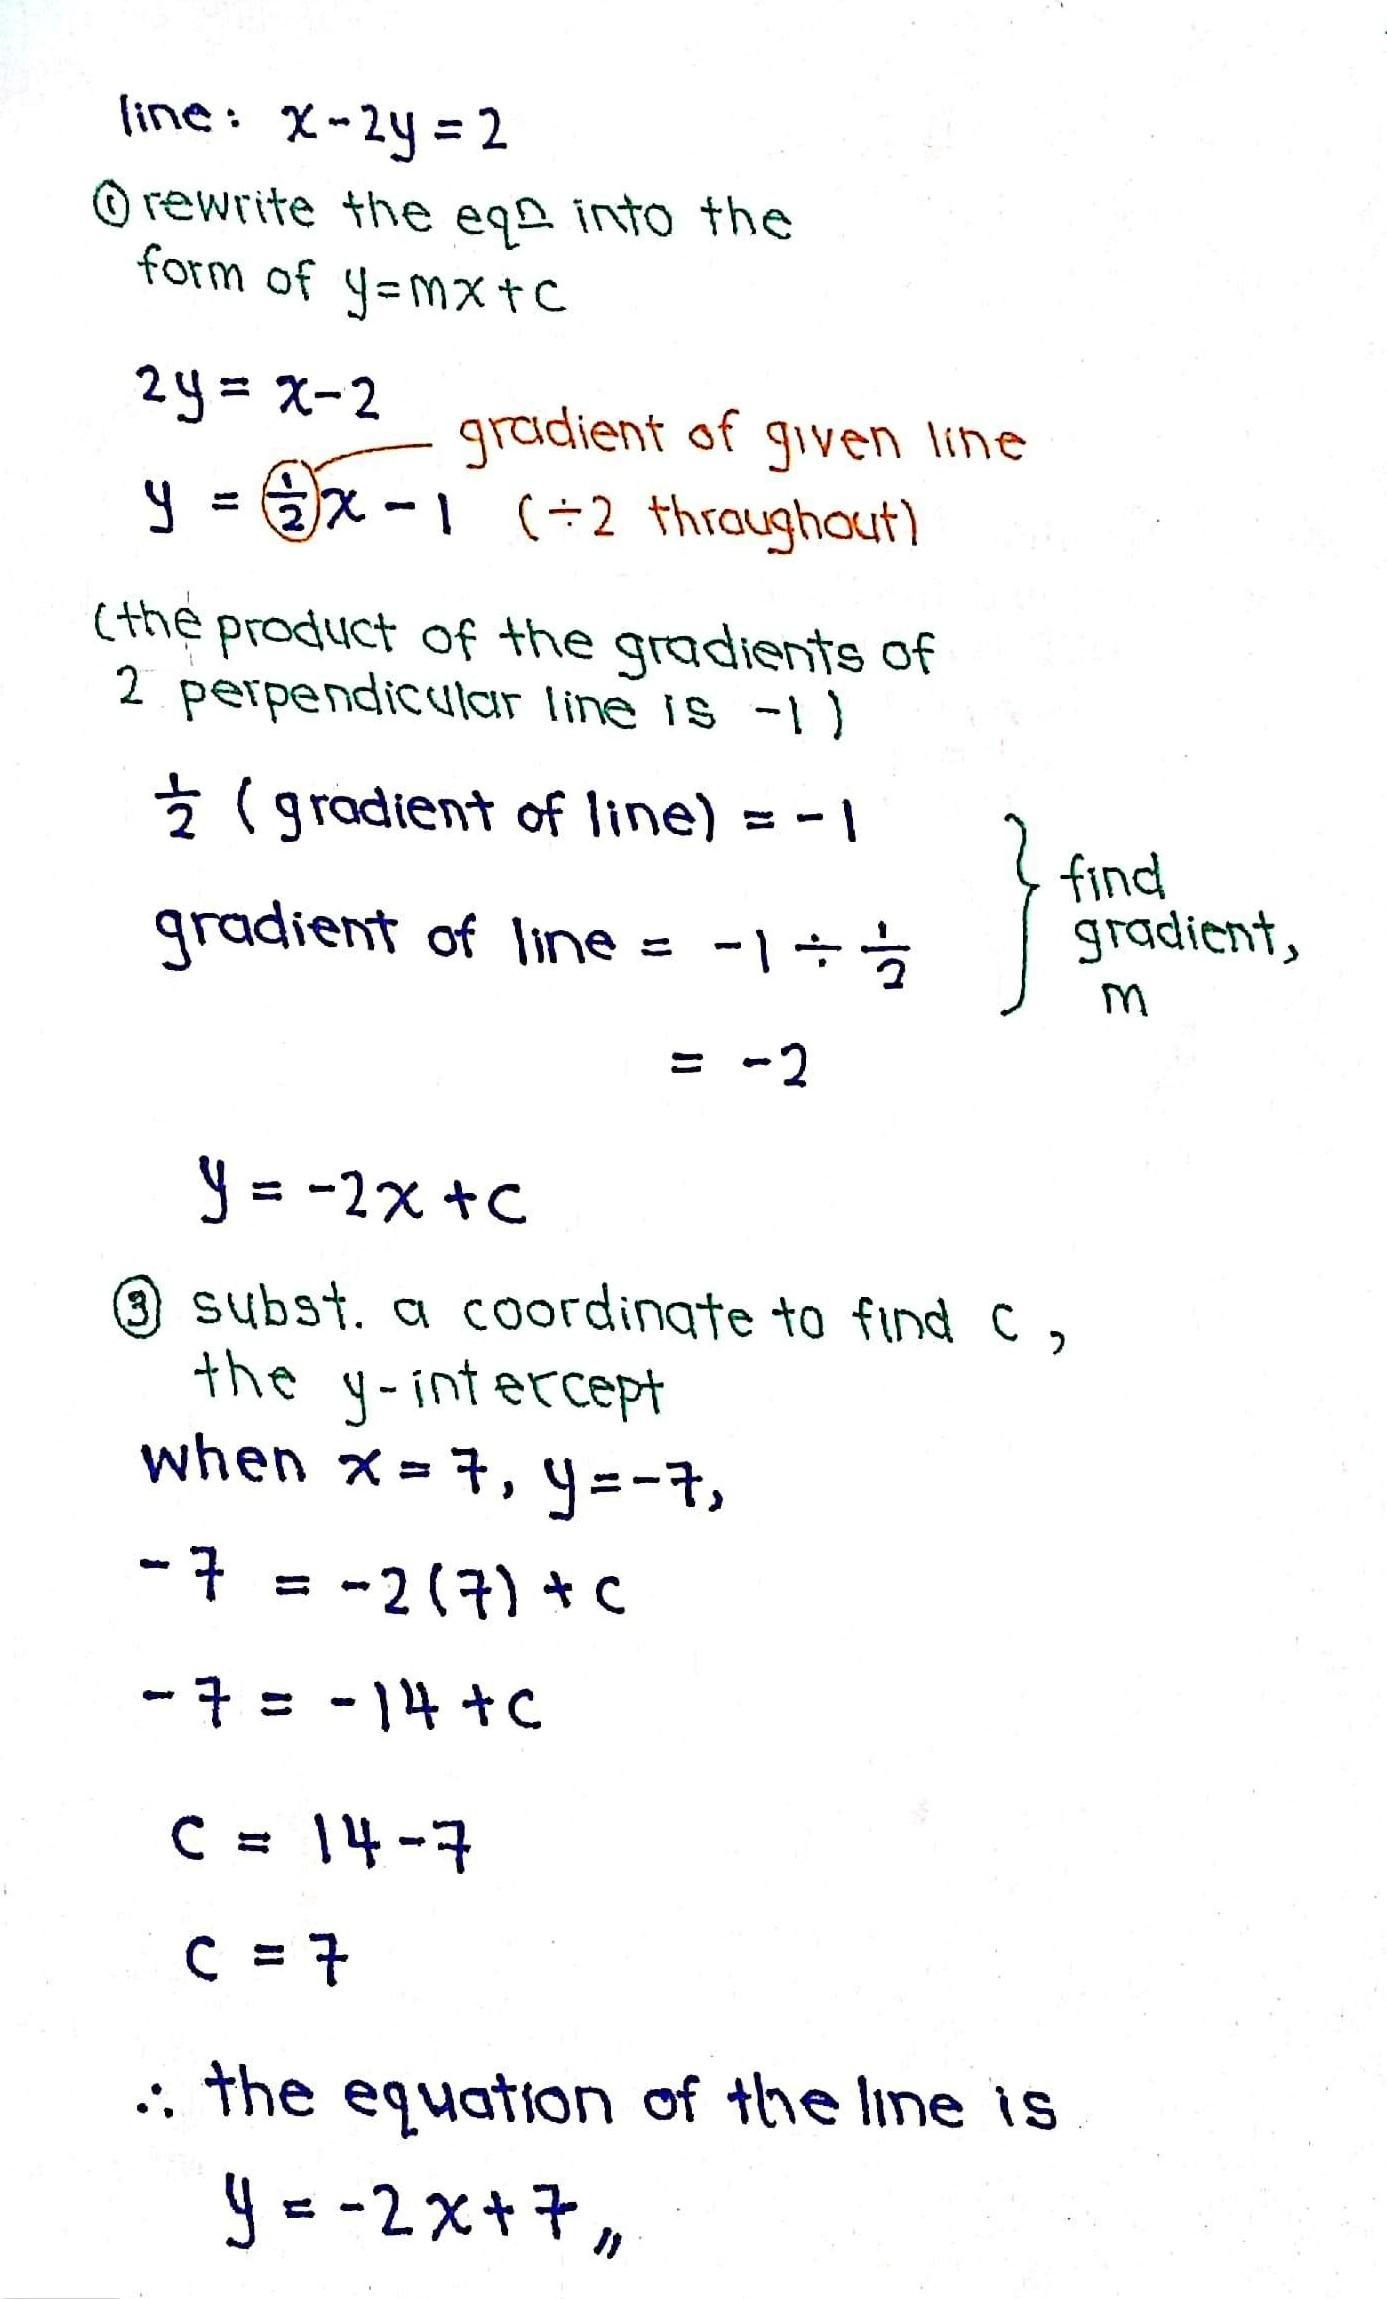 line: x-2y=2
① rewrite the eqn into the
form of y=mx+c
2y = x-2
gradient of given line
y = ½x - 1 (÷2 throughout)
(the product of the gradients of
2 perpendicular line is -1)
½ (gradient of line) = -1
gradient of line = -1 ÷ ½
= -2
} find
gradient,
m
y = -2x +c
③ subst. a coordinate to find c,
the y-intercept
when x=7, y=-7,
-7 = -2(7)+c
-7 = -14 +c
c = 14-7
c = 7
∴ the equation of the line is
y = -2x+7 〃